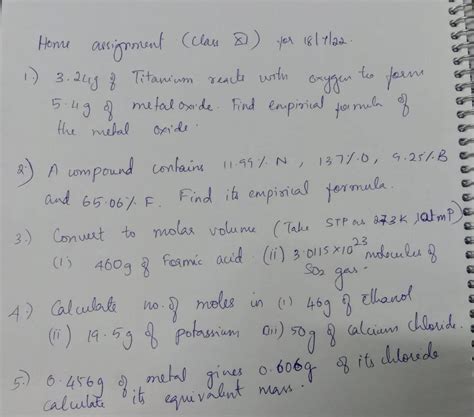 Home assignment (Class X) for 18/7/22.
1) 3.24g of Titanium reacts with oxygen to form
5.4g of metal oxide. Find empirical formula of
the metal oxide.
2) A compound contains 11.99% N, 13.7% O, 9.25% B
and 65.06% F. Find its empirical formula.
3.) Convert to molar volume (Take STP as 273K, 1atmP)
(i) 460g of Formic acid. (ii) 3.0115×10²³ molecules of
SO₂ gas.
4.) Calculate no. of moles in (i) 46g of Ethanol
(ii) 19.5g of potassium (iii) 50g of calcium chloride.
5.) 0.456g of metal gives 0.606g of its chloride
calculate its equivalent mass.